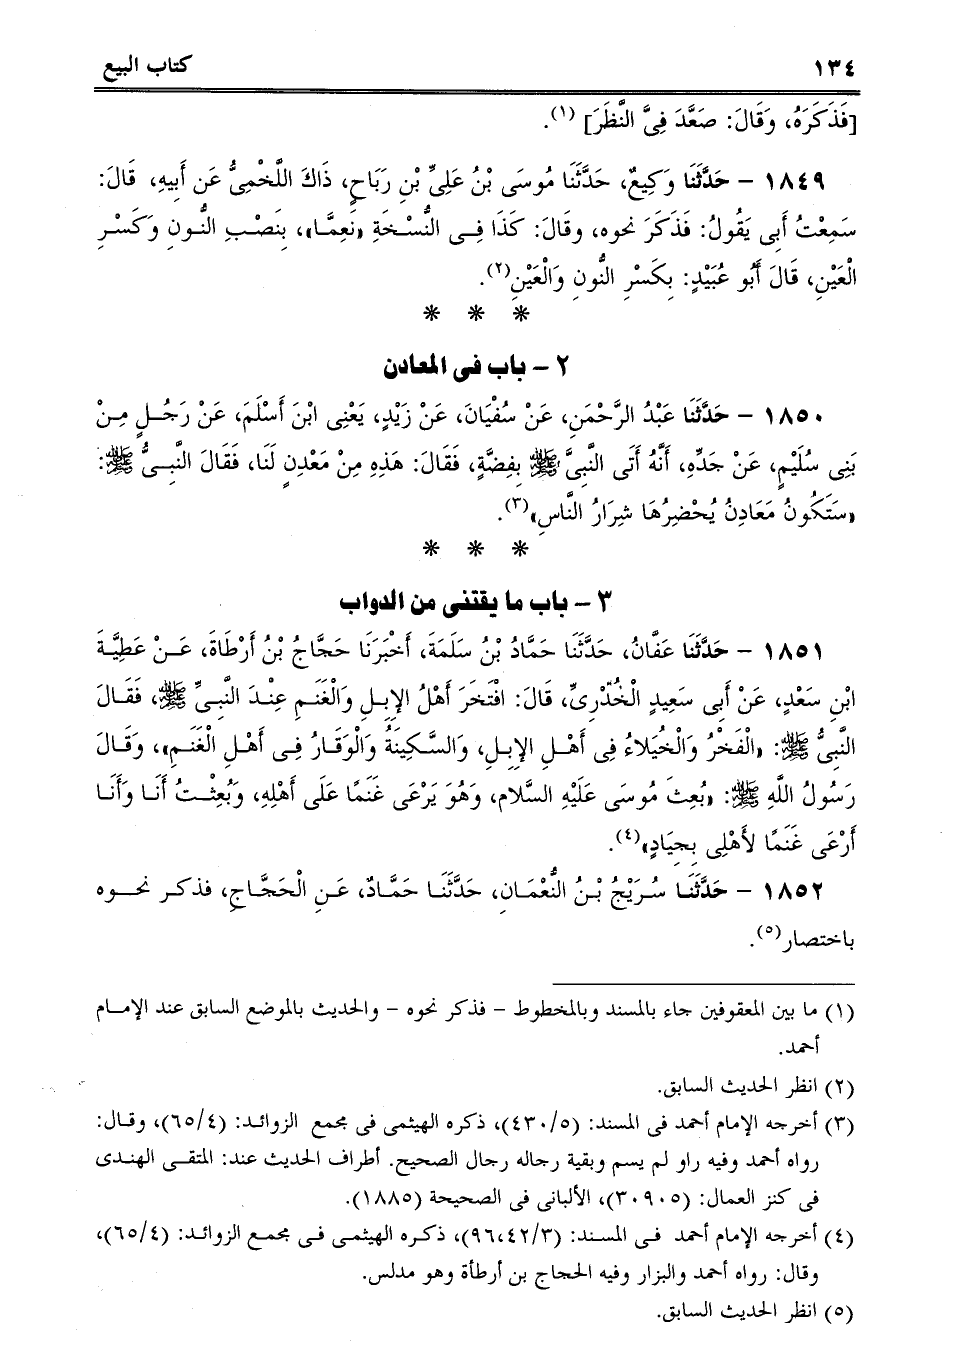 ١٣٤ كتاب البيع
[فَذَكَرَهُ، وَقَالَ: صَعَّدَ فِىَّ النَّظَرَ] (١).
١٨٤٩ – حَدَّثَنَا وَكِيعٌ، حَدَّثَنَا مُوسَى بْنُ عَلِىِّ بْنِ رَبَاحٍ، ذَاكَ اللَّخْمِىُّ عَن أَبِيهِ، قَالَ:
سَمِعْتُ أَبِى يَقُولُ: فَذَكَرَ نحوه، وقَالَ: كَذَا فِـى النُّسْـخَةِ «نَعِمَّـا»، بِنَصْـبِ النُّـونِ وَكَسْـرِ
الْعَيْنِ، قَالَ أَبُو عُبَيْدٍ: بِكَسْرِ النُّونِ وَالْعَيْنِ(٢).
* * *
٢ – باب فى المعادن
١٨٥٠ – حَدَّثَنَا عَبْدُ الرَّحْمَنِ، عَنْ سُفْيَانَ، عَنْ زَيْدٍ، يَعْنِى ابْنَ أَسْلَمَ، عَنْ رَجُـلٍ مِـنْ
بَنِى سُلَيْمٍ، عَنْ جَدِّهِ، أَنَّهُ أَتَى النَّبِىَّ ﷺ بِفِضَّةٍ، فَقَالَ: هَذِهِ مِنْ مَعْدِنٍ لَنَا، فَقَالَ النَّبِـىُّ ﷺ:
«سَتَكُونُ مَعَادِنُ يُحْضِرُهَا شِرَارُ النَّاسِ»(٣).
* * *
٣ – باب ما يقتنى من الدواب
١٨٥١ – حَدَّثَنَا عَفَّانُ، حَدَّثَنَا حَمَّادُ بْنُ سَلَمَةَ، أَخْبَرَنَا حَجَّاجُ بْنُ أَرْطَاةَ، عَـنْ عَطِيَّـةَ
ابْنِ سَعْدٍ، عَنْ أَبِى سَعِيدٍ الْخُدْرِىِّ، قَالَ: افْتَخَرَ أَهْلُ الإِبِـلِ وَالْغَنَـمِ عِنْـدَ النَّبِـىِّ ﷺ، فَقَـالَ
النَّبِىُّ ﷺ: «الْفَخْرُ وَالْخُيَلاءُ فِى أَهْـلِ الإِبِلِ، وَالسَّـكِينَةُ وَالْوَقَارُ فِـى أَهْـلِ الْغَنَـمِ»، وَقَـالَ
رَسُولُ اللَّهِ ﷺ: «بُعِثَ مُوسَى عَلَيْهِ السَّلام، وَهُوَ يَرْعَى غَنَمًا عَلَى أَهْلِهِ، وَبُعِثْـتُ أَنَـا وَأَنَـا
أَرْعَى غَنَمًا لأَهْلِى بِجِيَادٍ»(٤).
١٨٥٢ – حَدَّثَنَـا سُـرَيْجُ بْـنُ النُّعْمَـانِ، حَدَّثَنَـا حَمَّـادٌ، عَـنِ الْحَجَّـاجِ، فذكـر نحـوه
باختصار(٥).
(١) ما بين المعقوفين جاء بالمسند وبالمخطوط – فذكر نحوه – والحديث بالموضع السابق عند الإمـام
أحمد.
(٢) انظر الحديث السابق.
(٣) أخرجه الإمام أحمد فى المسند: (٤٣٠/٥)، ذكره الهيثمى فى مجمع الزوائـد: (٦٥/٤)، وقـال:
رواه أحمد وفيه راو لم يسم وبقية رجاله رجال الصحيح. أطراف الحديث عند: المتقـى الهنـدى
فى كنز العمال: (٣٠٩٠٥)، الألبانى فى الصحيحة (١٨٨٥).
(٤) أخرجه الإمام أحمد فـى المسـند: (٩٦،٤٢/٣)، ذكـره الهيثمـى فـى مجمـع الزوائـد: (٦٥/٤)،
وقال: رواه أحمد والبزار وفيه الحجاج بن أرطأة وهو مدلس.
(٥) انظر الحديث السابق.